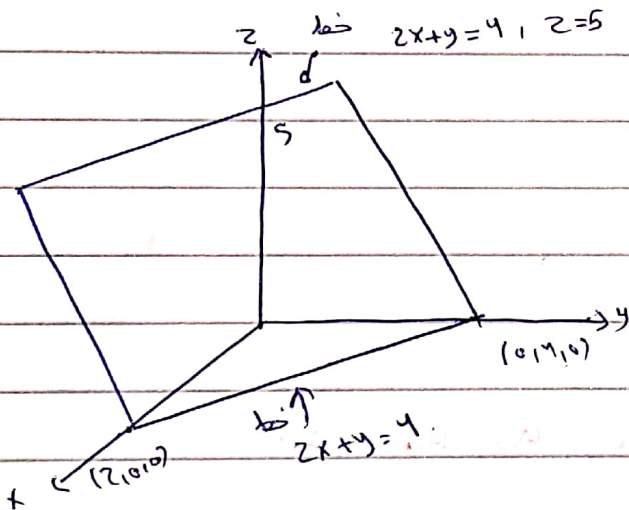 z خط 2x+y=4, z=5
d
5
y
(0,4,0)
خط
2x+y=4
(2,0,0)
x